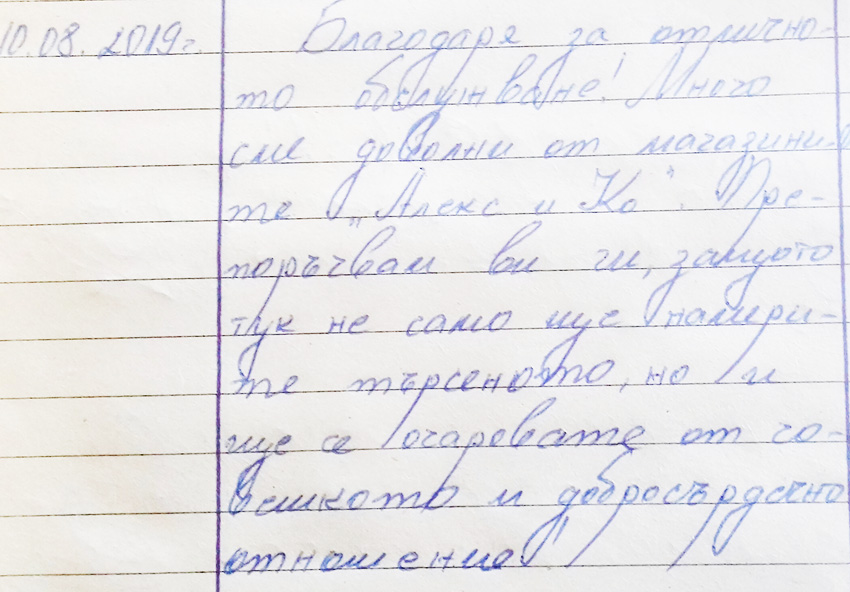 10.08.2019г. Благодаря за отлично-
то обслужване! Много
сме доволни от магазини-
те „Алекс и Ко". Пре-
поръчвам ви ги, защото
тук не само ще намери-
те търсеното, но и
ще се очаровате от чо-
вешкото и добросърдечно
отношение!